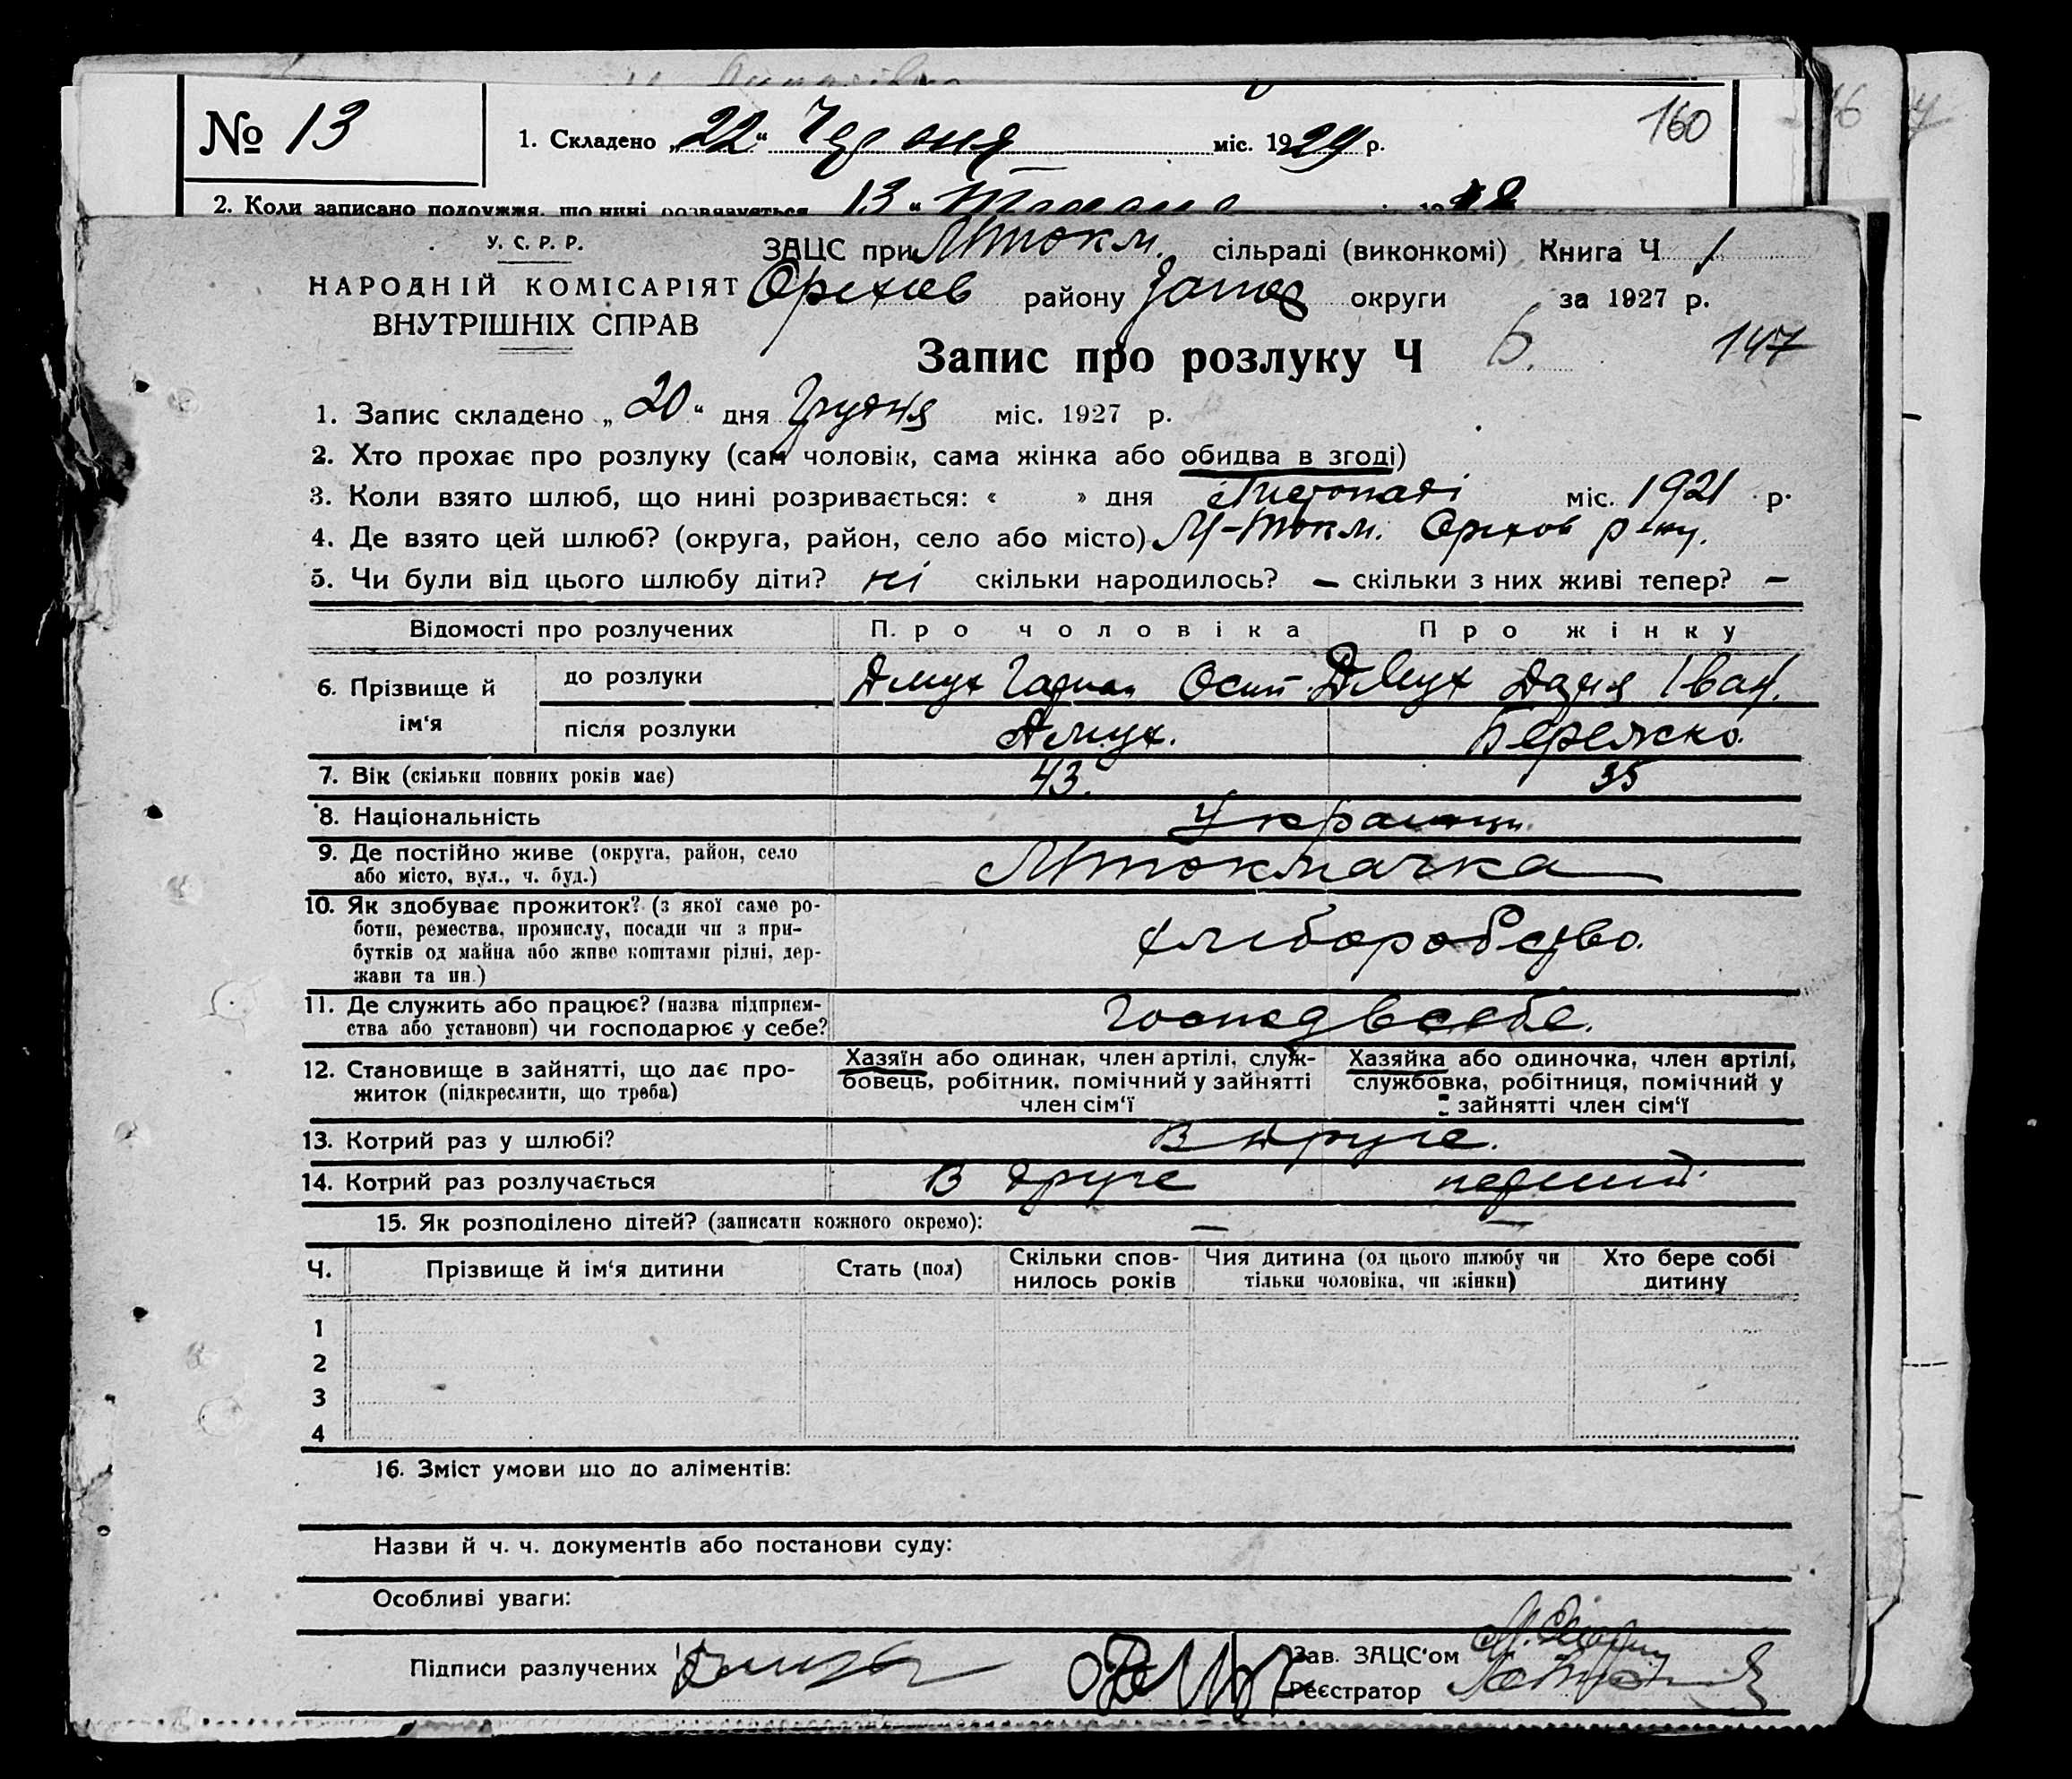 № 13
1. Складено „22“ Червня міс. 1929 р.
160
2. Коли записано подружжя, що нині розвязується 13 “
У. С. Р. Р.
НАРОДНІЙ КОМІСАРІЯТ
ВНУТРІШНІХ СПРАВ
ЗАЦС при МТокм. сільраді (виконкомі) Книга Ч 1
Оріхів району Запор округи за 1927 р.
Запис про розлуку Ч 6.
147
1. Запис складено „20“ дня Грудня міс. 1927 р.
2. Хто прохає про розлуку (сам чоловік, сама жінка або обидва в згоді)
3. Коли взято шлюб, що нині розривається: « » дня Листопаді міс. 1921 р.
4. Де взято цей шлюб? (округа, район, село або місто) М-Токм. Оріхов р-ну.
5. Чи були від цього шлюбу діти? ні скільки народилось? — скільки з них живі тепер? —
Відомості про розлучених
Про чоловіка
Про жінку
6. Прізвище й ім‘я
до розлуки
Дмух Осип
Дмух Дария Іван.
після розлуки
Дмух.
Бережко.
7. Вік (скільки повних років має)
43.
35
8. Національність
Українці
9. Де постійно живе (округа, район, село
або місто, вул., ч. буд.)
МТокмачка
10. Як здобуває прожиток? (з якої саме ро-
боти, ремества, промислу, посади чи з при-
бутків од майна або живе коштами рідні, дер-
жави та ин.)
хліборобство.
11. Де служить або працює? (назва підприєм-
ства або установи) чи господарює у себе?
Господ в себе.
12. Становище в зайнятті, що дає про-
житок (підкреслити, що треба)
Хазяїн або одинак, член артілі, служ-
бовець, робітник, помічний у зайнятті
член сім‘ї
Хазяйка або одиночка, член артілі,
службовка, робітниця, помічний у
зайнятті член сім‘ї
13. Котрий раз у шлюбі?
В друге.
14. Котрий раз розлучається
В друге
перший.
15. Як розподілено дітей? (записати кожного окремо): — —
Ч.
Прізвище й ім‘я дитини
Стать (пол)
Скільки спов-
нилось років
Чия дитина (од цього шлюбу чи
тільки чоловіка, чи жінки)
Хто бере собі
дитину
1
2
3
4
16. Зміст умови що до аліментів:
Назви й ч. ч. документів або постанови суду:
Особливі уваги:
Підписи разлучених
Зав. ЗАЦС‘ом
Реєстратор